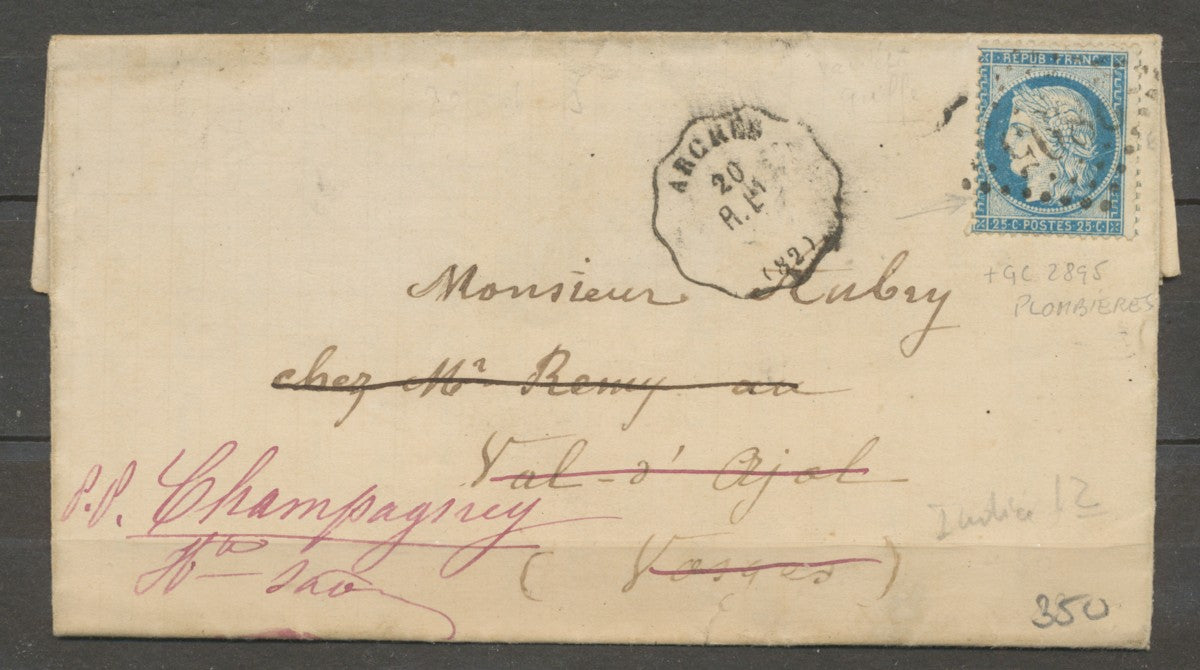 REPUB. FRANC.
2895
25.C POSTES 25.C
ARCHES
20
R.LM
(82)
+ GC 2895
PLOMBIERES
Monsieur Aubry
chez Mr Remy au
Val-d'Ajol
P.P. Champagney
Hte Saô
( Vosges )
Indice 12
350